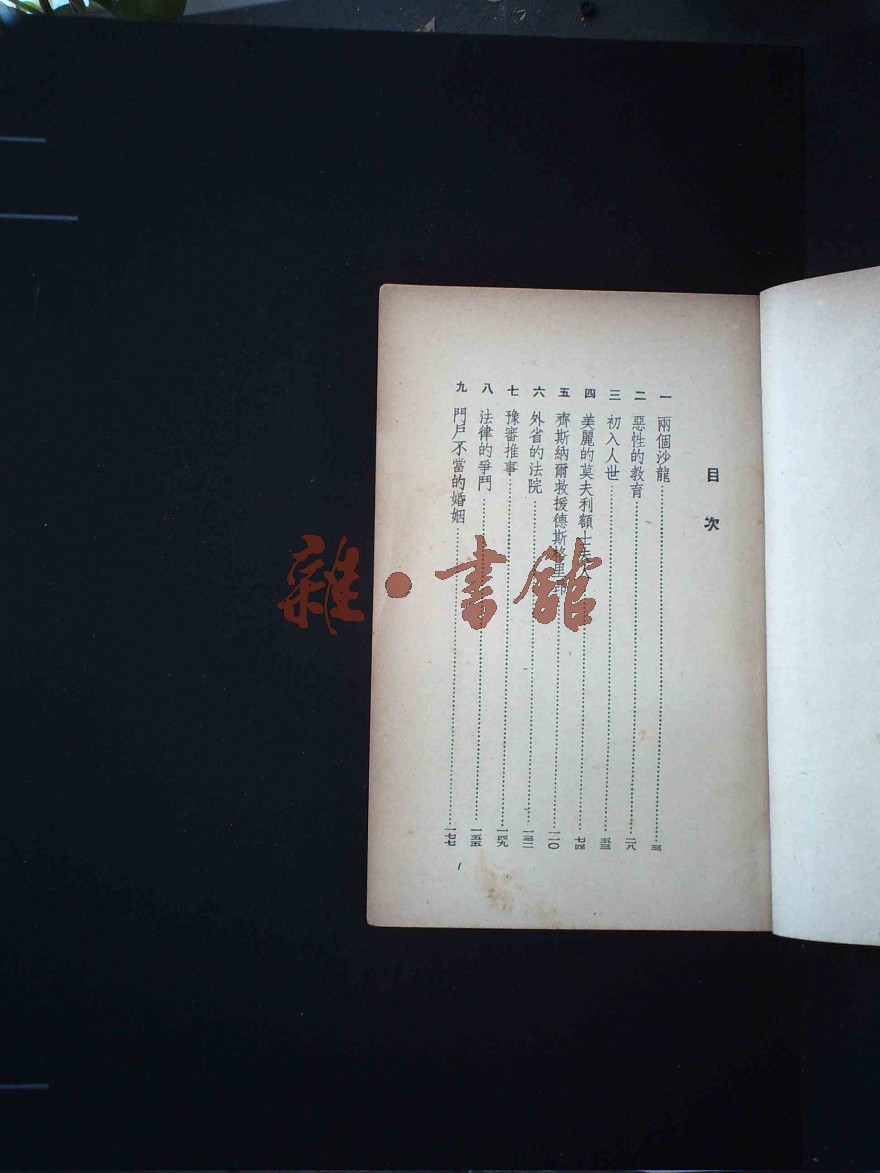 目次
一 兩個沙龍 三
二 惡性的教育 二八
三 初入人世 五三
四 美麗的莫夫利額士夫人 七四
五 齊斯納爾救援德斯格里 一一〇
六 外省的法院 一三二
七 豫審推事 一四九
八 法律的爭鬥 一五五
九 門戶不當的婚姻 一七七
1
雜·書館